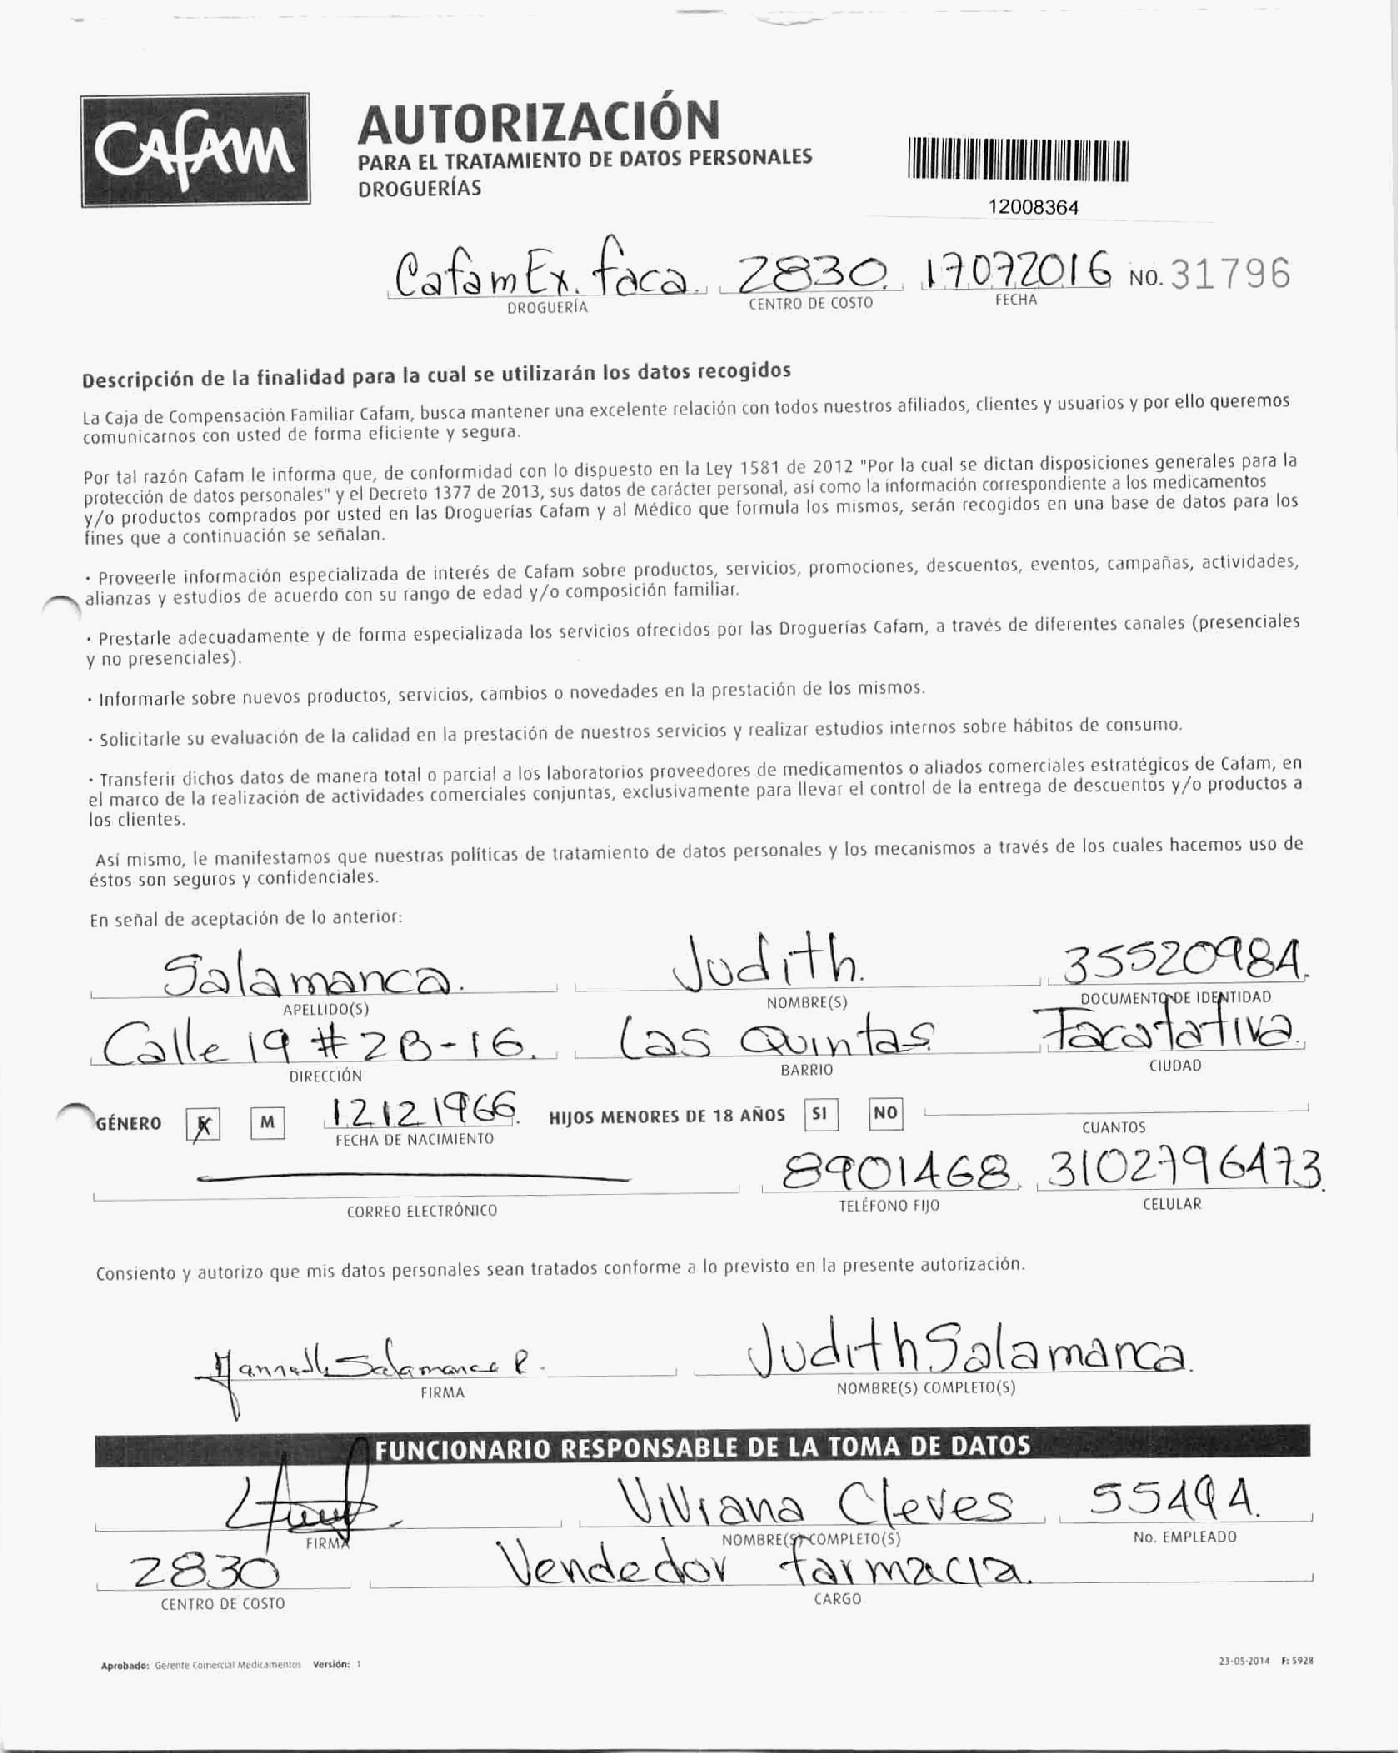 CAFAM
AUTORIZACIÓN
PARA EL TRATAMIENTO DE DATOS PERSONALES
DROGUERÍAS
12008364
Cafam Ex. faca. 2830. 17072016 NO. 31796
DROGUERÍA CENTRO DE COSTO FECHA
Descripción de la finalidad para la cual se utilizarán los datos recogidos
La Caja de Compensación Familiar Cafam, busca mantener una excelente relación con todos nuestros afiliados, clientes y usuarios y por ello queremos
comunicarnos con usted de forma eficiente y segura.
Por tal razón Cafam le informa que, de conformidad con lo dispuesto en la Ley 1581 de 2012 "Por la cual se dictan disposiciones generales para la
protección de datos personales" y el Decreto 1377 de 2013, sus datos de carácter personal, así como la información correspondiente a los medicamentos
y/o productos comprados por usted en las Droguerías Cafam y al Médico que formula los mismos, serán recogidos en una base de datos para los
fines que a continuación se señalan.
· Proveerle información especializada de interés de Cafam sobre productos, servicios, promociones, descuentos, eventos, campañas, actividades,
alianzas y estudios de acuerdo con su rango de edad y/o composición familiar.
· Prestarle adecuadamente y de forma especializada los servicios ofrecidos por las Droguerías Cafam, a través de diferentes canales (presenciales
y no presenciales).
· Informarle sobre nuevos productos, servicios, cambios o novedades en la prestación de los mismos.
· Solicitarle su evaluación de la calidad en la prestación de nuestros servicios y realizar estudios internos sobre hábitos de consumo.
· Transferir dichos datos de manera total o parcial a los laboratorios proveedores de medicamentos o aliados comerciales estratégicos de Cafam, en
el marco de la realización de actividades comerciales conjuntas, exclusivamente para llevar el control de la entrega de descuentos y/o productos a
los clientes.
Así mismo, le manifestamos que nuestras políticas de tratamiento de datos personales y los mecanismos a través de los cuales hacemos uso de
éstos son seguros y confidenciales.
En señal de aceptación de lo anterior:
Salamanca. Judith. 35520984.
APELLIDO(S) NOMBRE(S) DOCUMENTO DE IDENTIDAD
Calle 19 # 2B-16. Las Quintas Facatativa.
DIRECCIÓN BARRIO CIUDAD
GÉNERO F M 12121966. HIJOS MENORES DE 18 AÑOS SI NO
FECHA DE NACIMIENTO CUANTOS
8901468. 3102796473.
CORREO ELECTRÓNICO TELÉFONO FIJO CELULAR
Consiento y autorizo que mis datos personales sean tratados conforme a lo previsto en la presente autorización.
Salamanca R. Judith Salamanca.
FIRMA NOMBRE(S) COMPLETO(S)
FUNCIONARIO RESPONSABLE DE LA TOMA DE DATOS
Viviana Cleves 55494.
FIRMA NOMBRE(S) COMPLETO(S) No. EMPLEADO
2830 Vendedor farmacia.
CENTRO DE COSTO CARGO
Aprobado: Gerente Comercial Medicamentos Versión: 1 23-05-2014 F: 5928